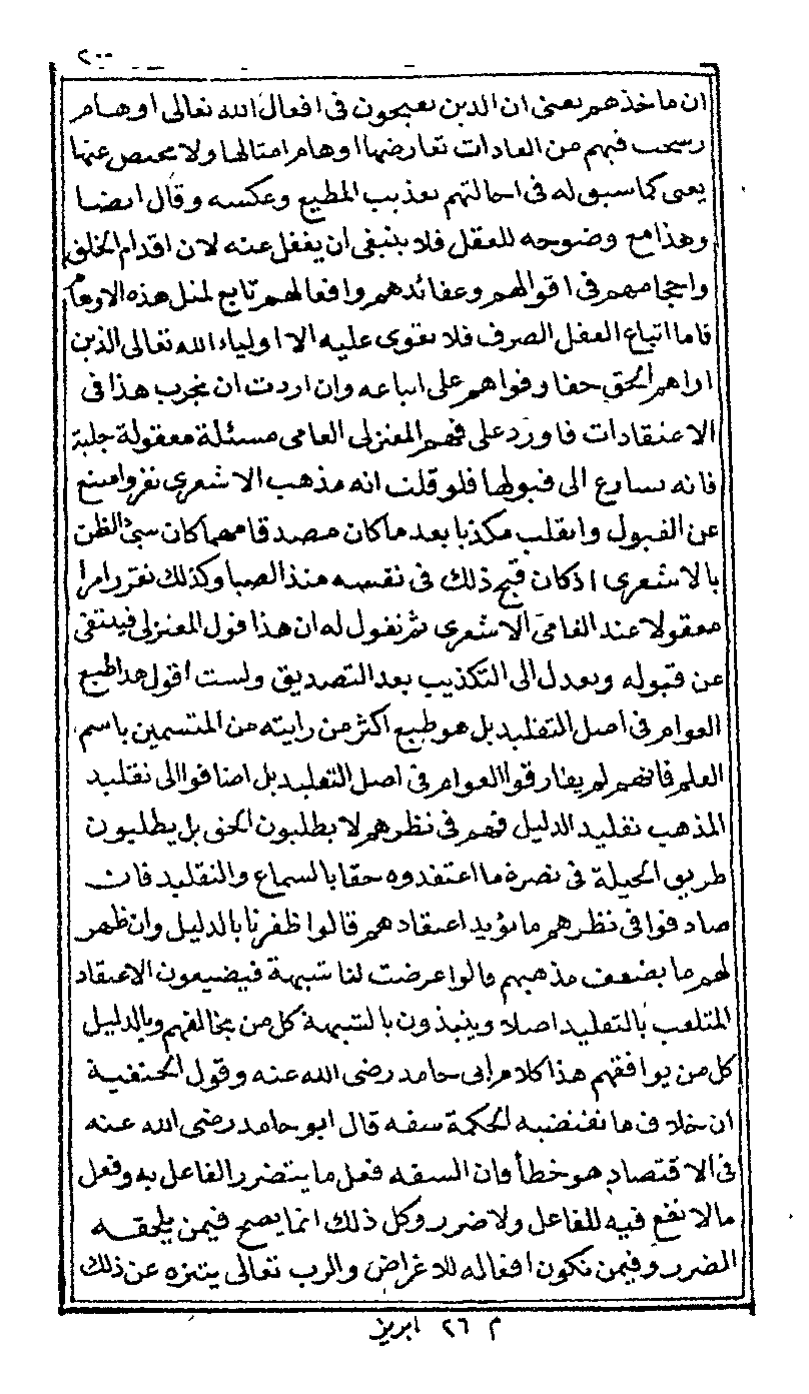 ٢٠٠
ان ماخذهم يعنى ان الذين يقبحون فى افعال الله تعالى اوهام
رسخت فيهم من العادات تعارضها اوهام امثالها ولا محيص عنها
يعنى كما سبق له فى احالتهم تعذيب المطيع وعكسه وقال ايضا
وهذا مع وضوحه للعقل فلا ينبغى ان يغفل عنه لان اقدام الخلق
واحجامهم فى اقوالهم وعقائدهم وافعالهم تابع لمثل هذه الاوهام
فاما اتباع العقل الصرف فلا يقوى عليه الا اولياء الله تعالى الذين
اراهم الحق حقا وقواهم على اتباعه وان اردت ان تجرب هذا فى
الاعتقادات فاورد على فهم المعتزلى العامى مسئلة معقولة جلية
فانه يسارع الى قبولها فلو قلت انه مذهب الاشعرى نفر وامتنع
عن القبول وانقلب مكذبا بعد ما كان مصدقا مهما كان سيئ الظن
بالاشعرى اذ كان قبح ذلك فى نفسه منذ الصبا وكذلك تقرر امرا
معقولا عند العامى الاشعرى ثم تقول له ان هذا قول المعتزلى فينتفى
عن قبوله ويعدل الى التكذيب بعد التصديق ولست اقول هذا طبع
العوام فى اصل التقليد بل هو طبع اكثر من رايته من المتسمين باسم
العلم فانهم لم يفارقوا العوام فى اصل التقليد بل اضافوا الى تقليد
المذهب تقليد الدليل فهم فى نظرهم لا يطلبون الحق بل يطلبون
طريق الحيلة فى نصرة ما اعتقدوه حقا بالسماع والتقليد فان
صادفوا فى نظرهم ما يؤيد اعتقادهم قالوا ظفرنا بالدليل وان ظهر
لهم ما يضعف مذهبهم قالوا عرضت لنا شبهة فيضيعون الاعتقاد
المتلقب بالتقليد اصلا وينبذون بالشبهة كل من يخالفهم وبالدليل
كل من يوافقهم هذا كلام ابى حامد رضى الله عنه وقول الحنفية
ان خلاف ما تقتضيه الحكمة سفه قال ابو حامد رضى الله عنه
فى الاقتصاد هو خطأ فان السفه فعل ما يتضرر الفاعل به وفعل
ما لا نفع فيه للفاعل ولا ضرر وكل ذلك انما يصح فيمن يلحقه
الضرر وفيمن تكون افعاله للاغراض والرب تعالى يتنزه عن ذلك
م ٢٦ ابريز